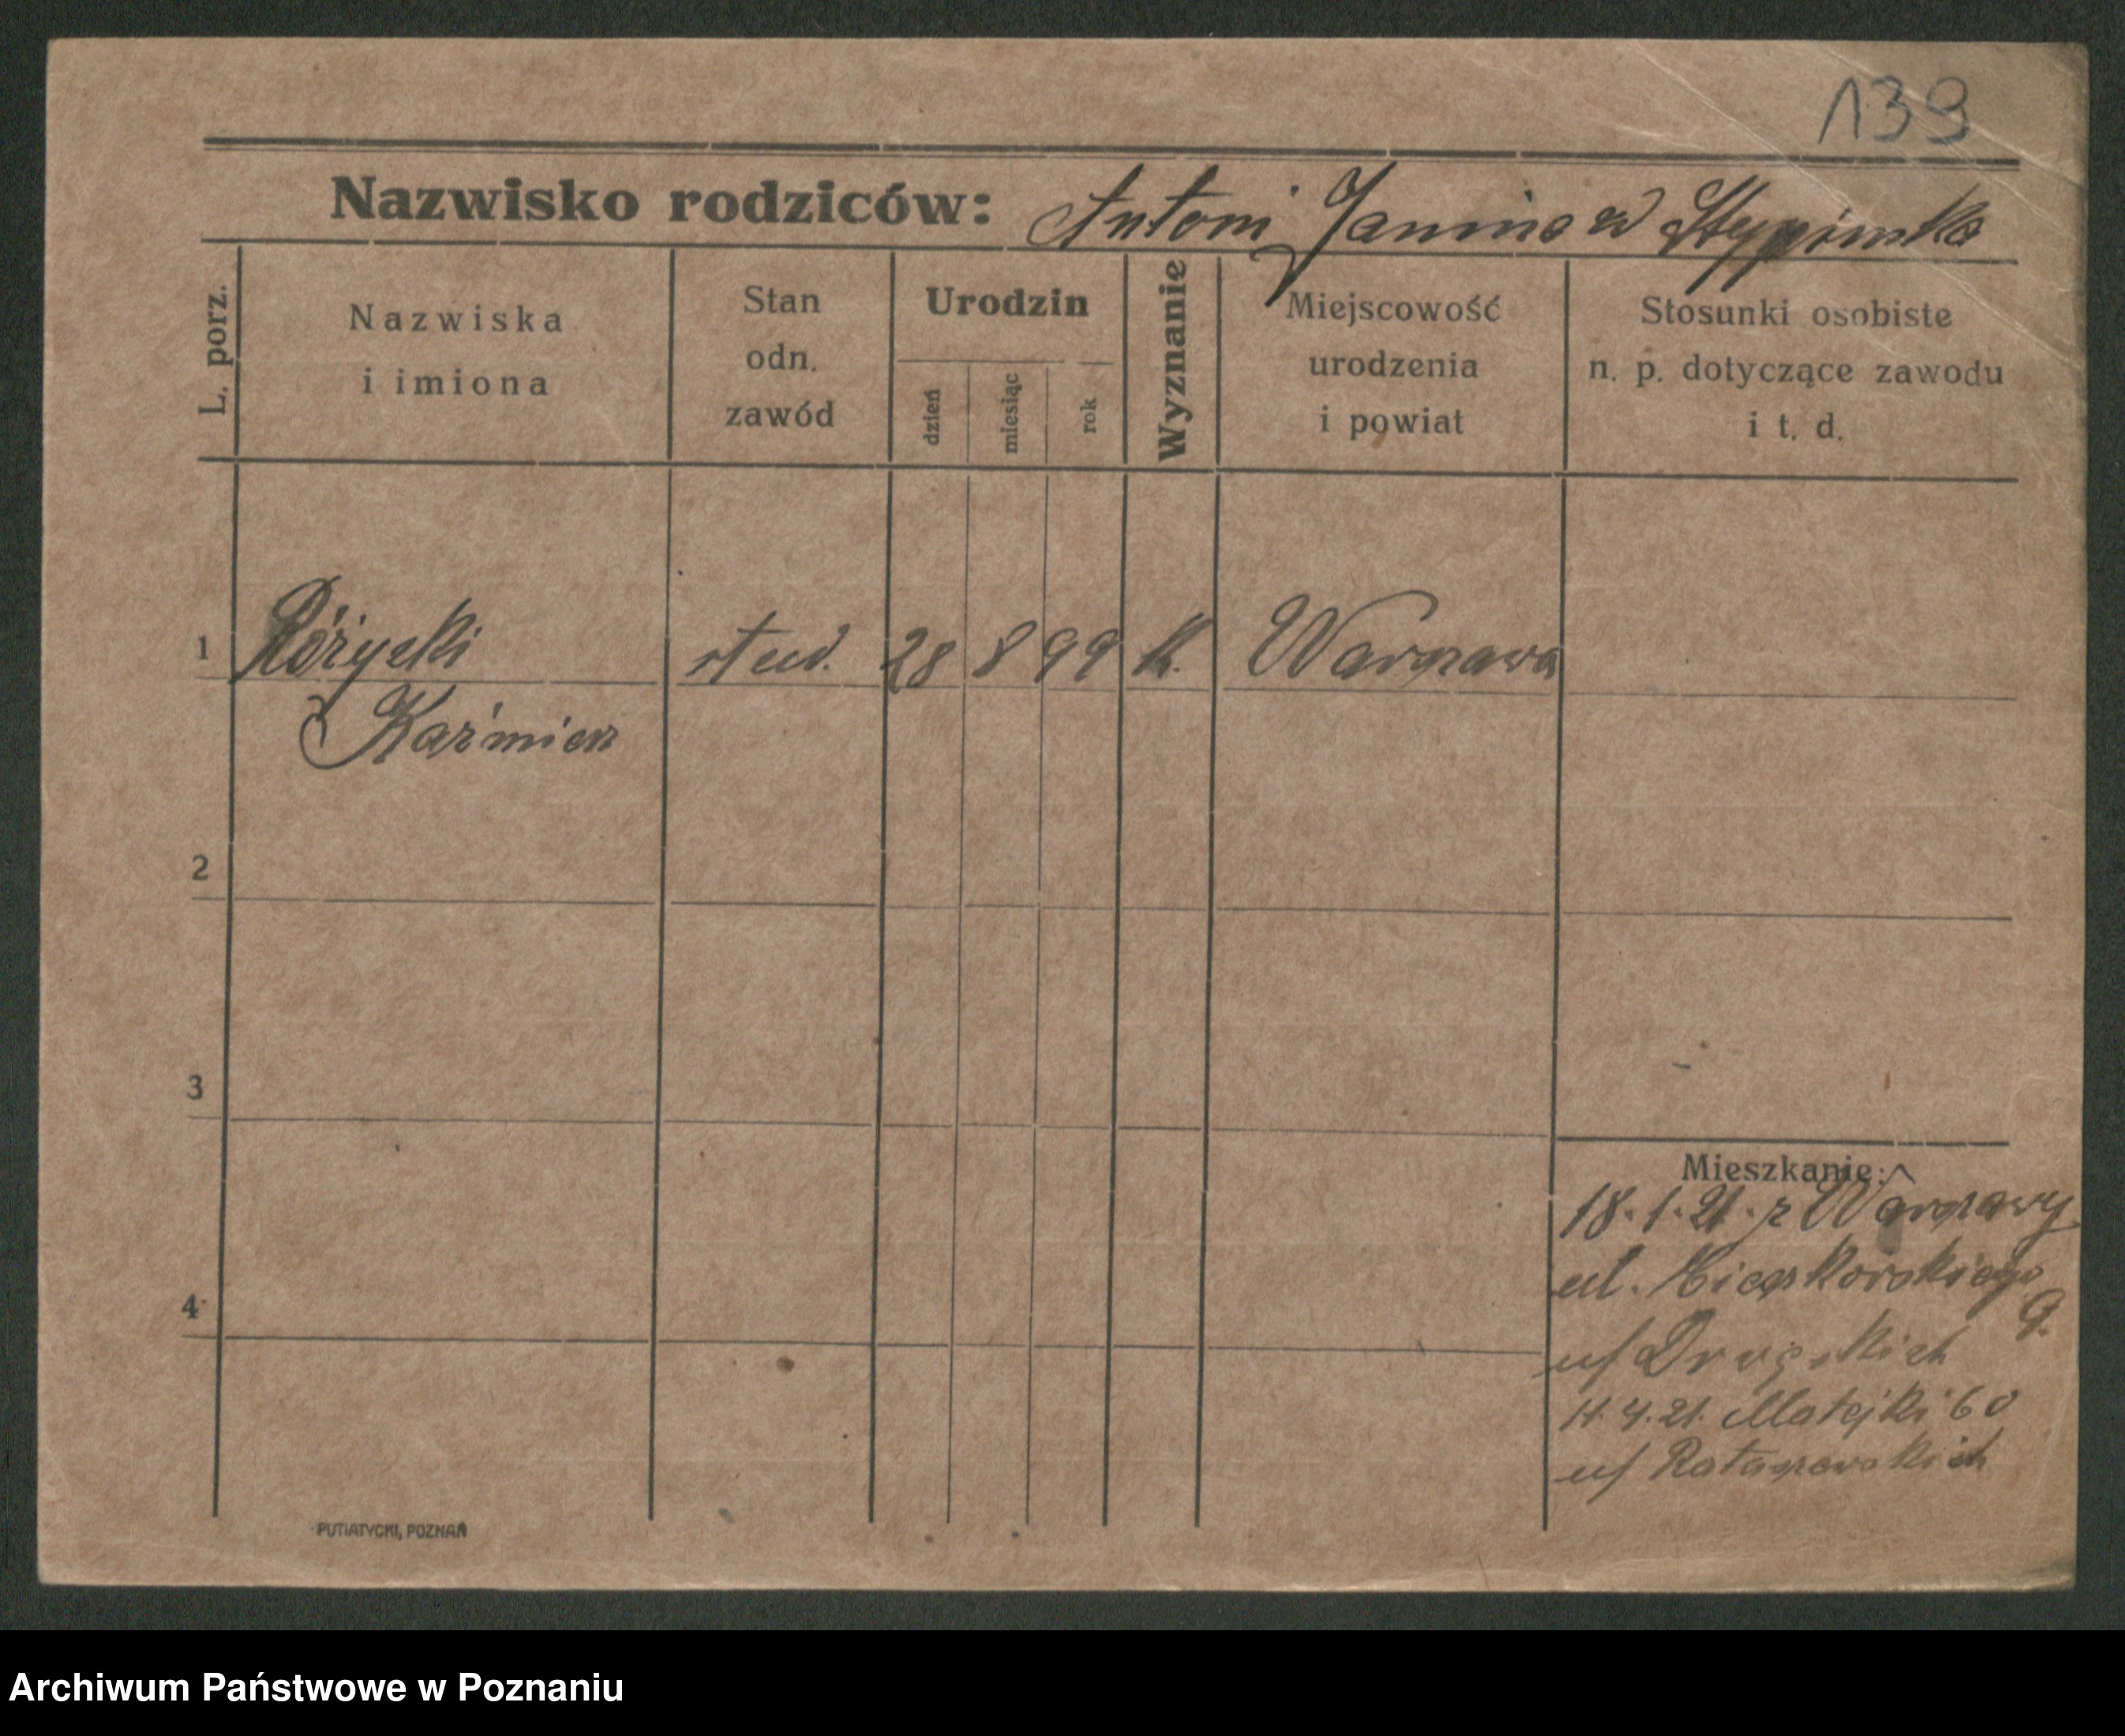 139
Nazwisko rodziców: Antoni Janina
L. porz.
Nazwiska
i imiona
Stan
odn.
zawód
Urodzin
dzień
miesiąc
rok
Wyznanie
Miejscowość
urodzenia
i powiat
Stosunki osobiste
n. p. dotyczące zawodu
i t. d.
1 Różycki stud. 28 8 99 k. Warszawa
Kaźmierz
2
3
4
Mieszkanie:
18.1.21. z Warszawy
ul.
9.
u/
4.21. Matejki 60
u/ Rataszewskich
PUTIATYCKI, POZNAŃ
Archiwum Państwowe w Poznaniu